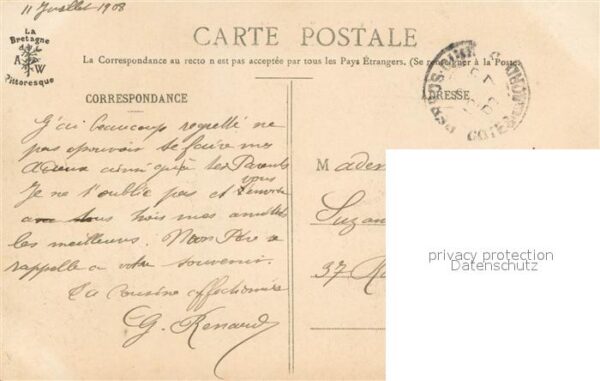 11 Juillet 1908
La
Bretagne
A W
Pittoresque
CARTE POSTALE
La Correspondance au recto n est pas acceptée par tous les Pays Étrangers. (Se renseigner à la Poste
CORRESPONDANCE
ADRESSE
J'ai beaucoup regretté ne
pas pouvoir te faire mes
adieux ainsi qu'à tes Parents
Je ne t'oublie pas et vous envoie
tous trois mes amitiés
les meilleures. Mon Père se
rappelle a votre souvenir.
Ta cousine affectionnée
G. Renard
Madem
Suzan
37 Ru
privacy protection
Datenschutz